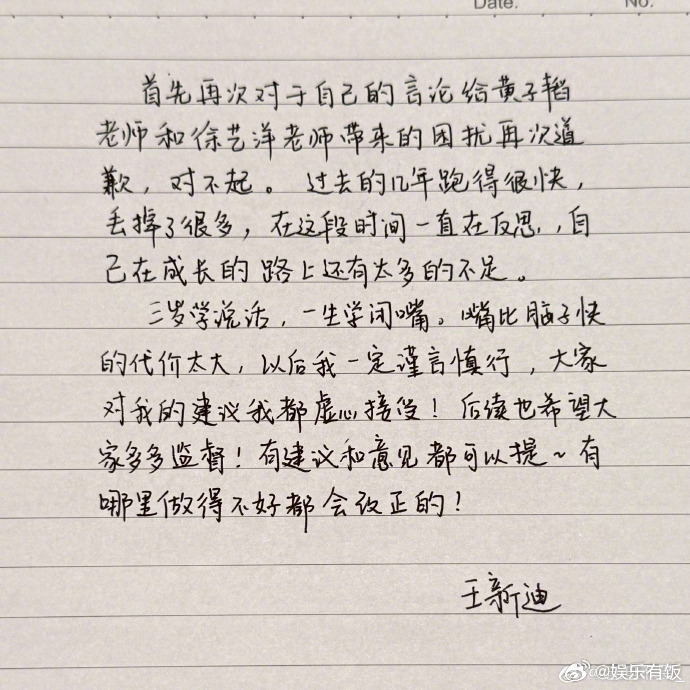 Date.
No.
首先再次对于自己的言论给黄子韬
老师和徐艺洋老师带来的困扰再次道
歉，对不起。过去的几年跑得很快，
丢掉了很多，在这段时间一直在反思，自
己在成长的路上还有太多的不足。
三岁学说话，一生学闭嘴。嘴比脑子快
的代价太大，以后我一定谨言慎行，大家
对我的建议我都虚心接受！后续也希望大
家多多监督！有建议和意见都可以提~有
哪里做得不好都会改正的！
王新迪
@娱乐有饭